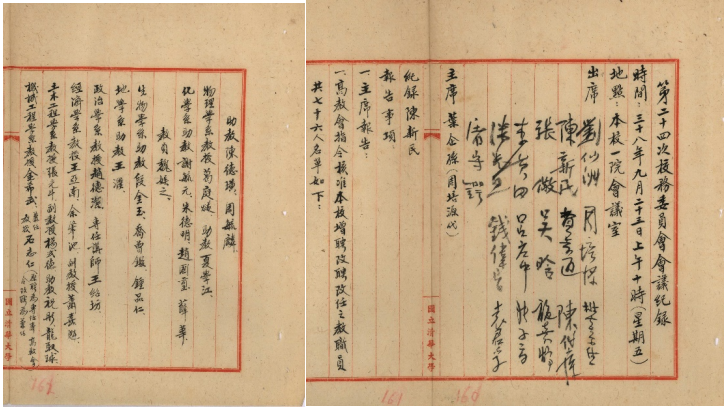 第二十四次校務委員會會議紀錄
時間：三十八年九月二十三日上午十時（星期五）
地點：本校工院會議室
出席 劉仙洲 周培源 樊恭烋
陳新民 費孝通 陳
張儆 吳晗
李廣田 呂應中
錢偉長 孟昭英
潘光旦
主席 葉企孫（周培源代）
紀錄 陳新民
報告事項
一、主席報告：
一、高教會指令核准本校增聘改聘改任之教職員
共七十六人名單如下：
國立清華大學
161
160
物理學系教授葛庭燧 助教夏學江
助教陳德璜 周毓麟
化學系助教謝毓元 朱德明 趙國 薛華
教員魏娱之
生物學系助教段金玉 喬曾鑑 鍾品仁
地學系助教王濯
政治學系教授趙德潔 專任講師王結坊
經濟學系教授王亞南 余肇池 副教授蕭嘉魁
土木工程學系教授張光斗 副教授楊式德 助教 龍馭球
機械工程學系教授金希武 教授石志仁
國立清華大學
162